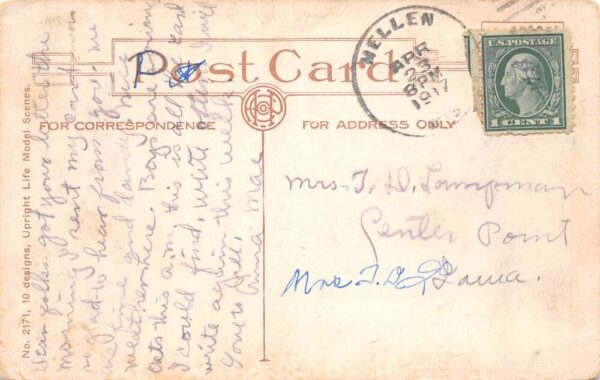 Post Card
FOR CORRESPONDENCE
FOR ADDRESS ONLY
No. 2171, 10 designs, Upright Life Model Scenes.
MELLEN
APR
23
8 PM
1917
WIS.
U.S. POSTAGE
1 CENT 1
Dear folks. got your letter this
morning, I sent my card
so glad to hear from you, we
are fine and dandy, nice
weather here. Boys are having
eats this a.m, this is all the card
I could find, write often I will
write again this week
Love to all,
Anna Mae
Mrs. T. D. Lampman
Center Point
Iowa.
Mrs T. D. L